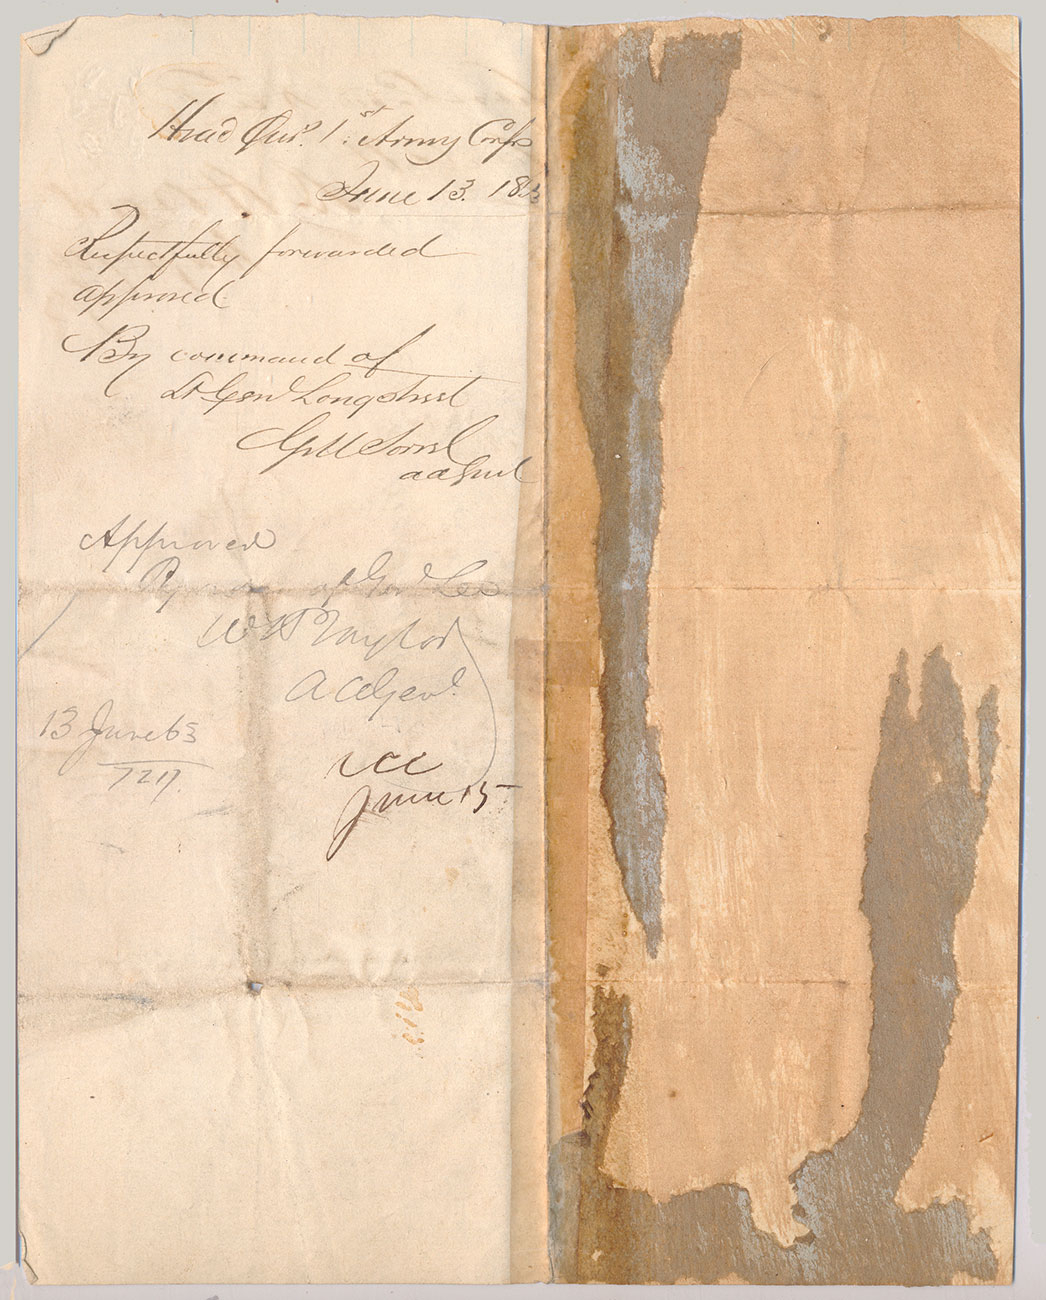 Head Qurs. 1st Army Corps
June 13. 1863
Respectfully forwarded
approved
By command of
Lt Gen Longstreet
G M Sorrel
a a Genl
Approved
By of Gen Lee
W H Taylor
A A Genl.
13 June 63
June 15